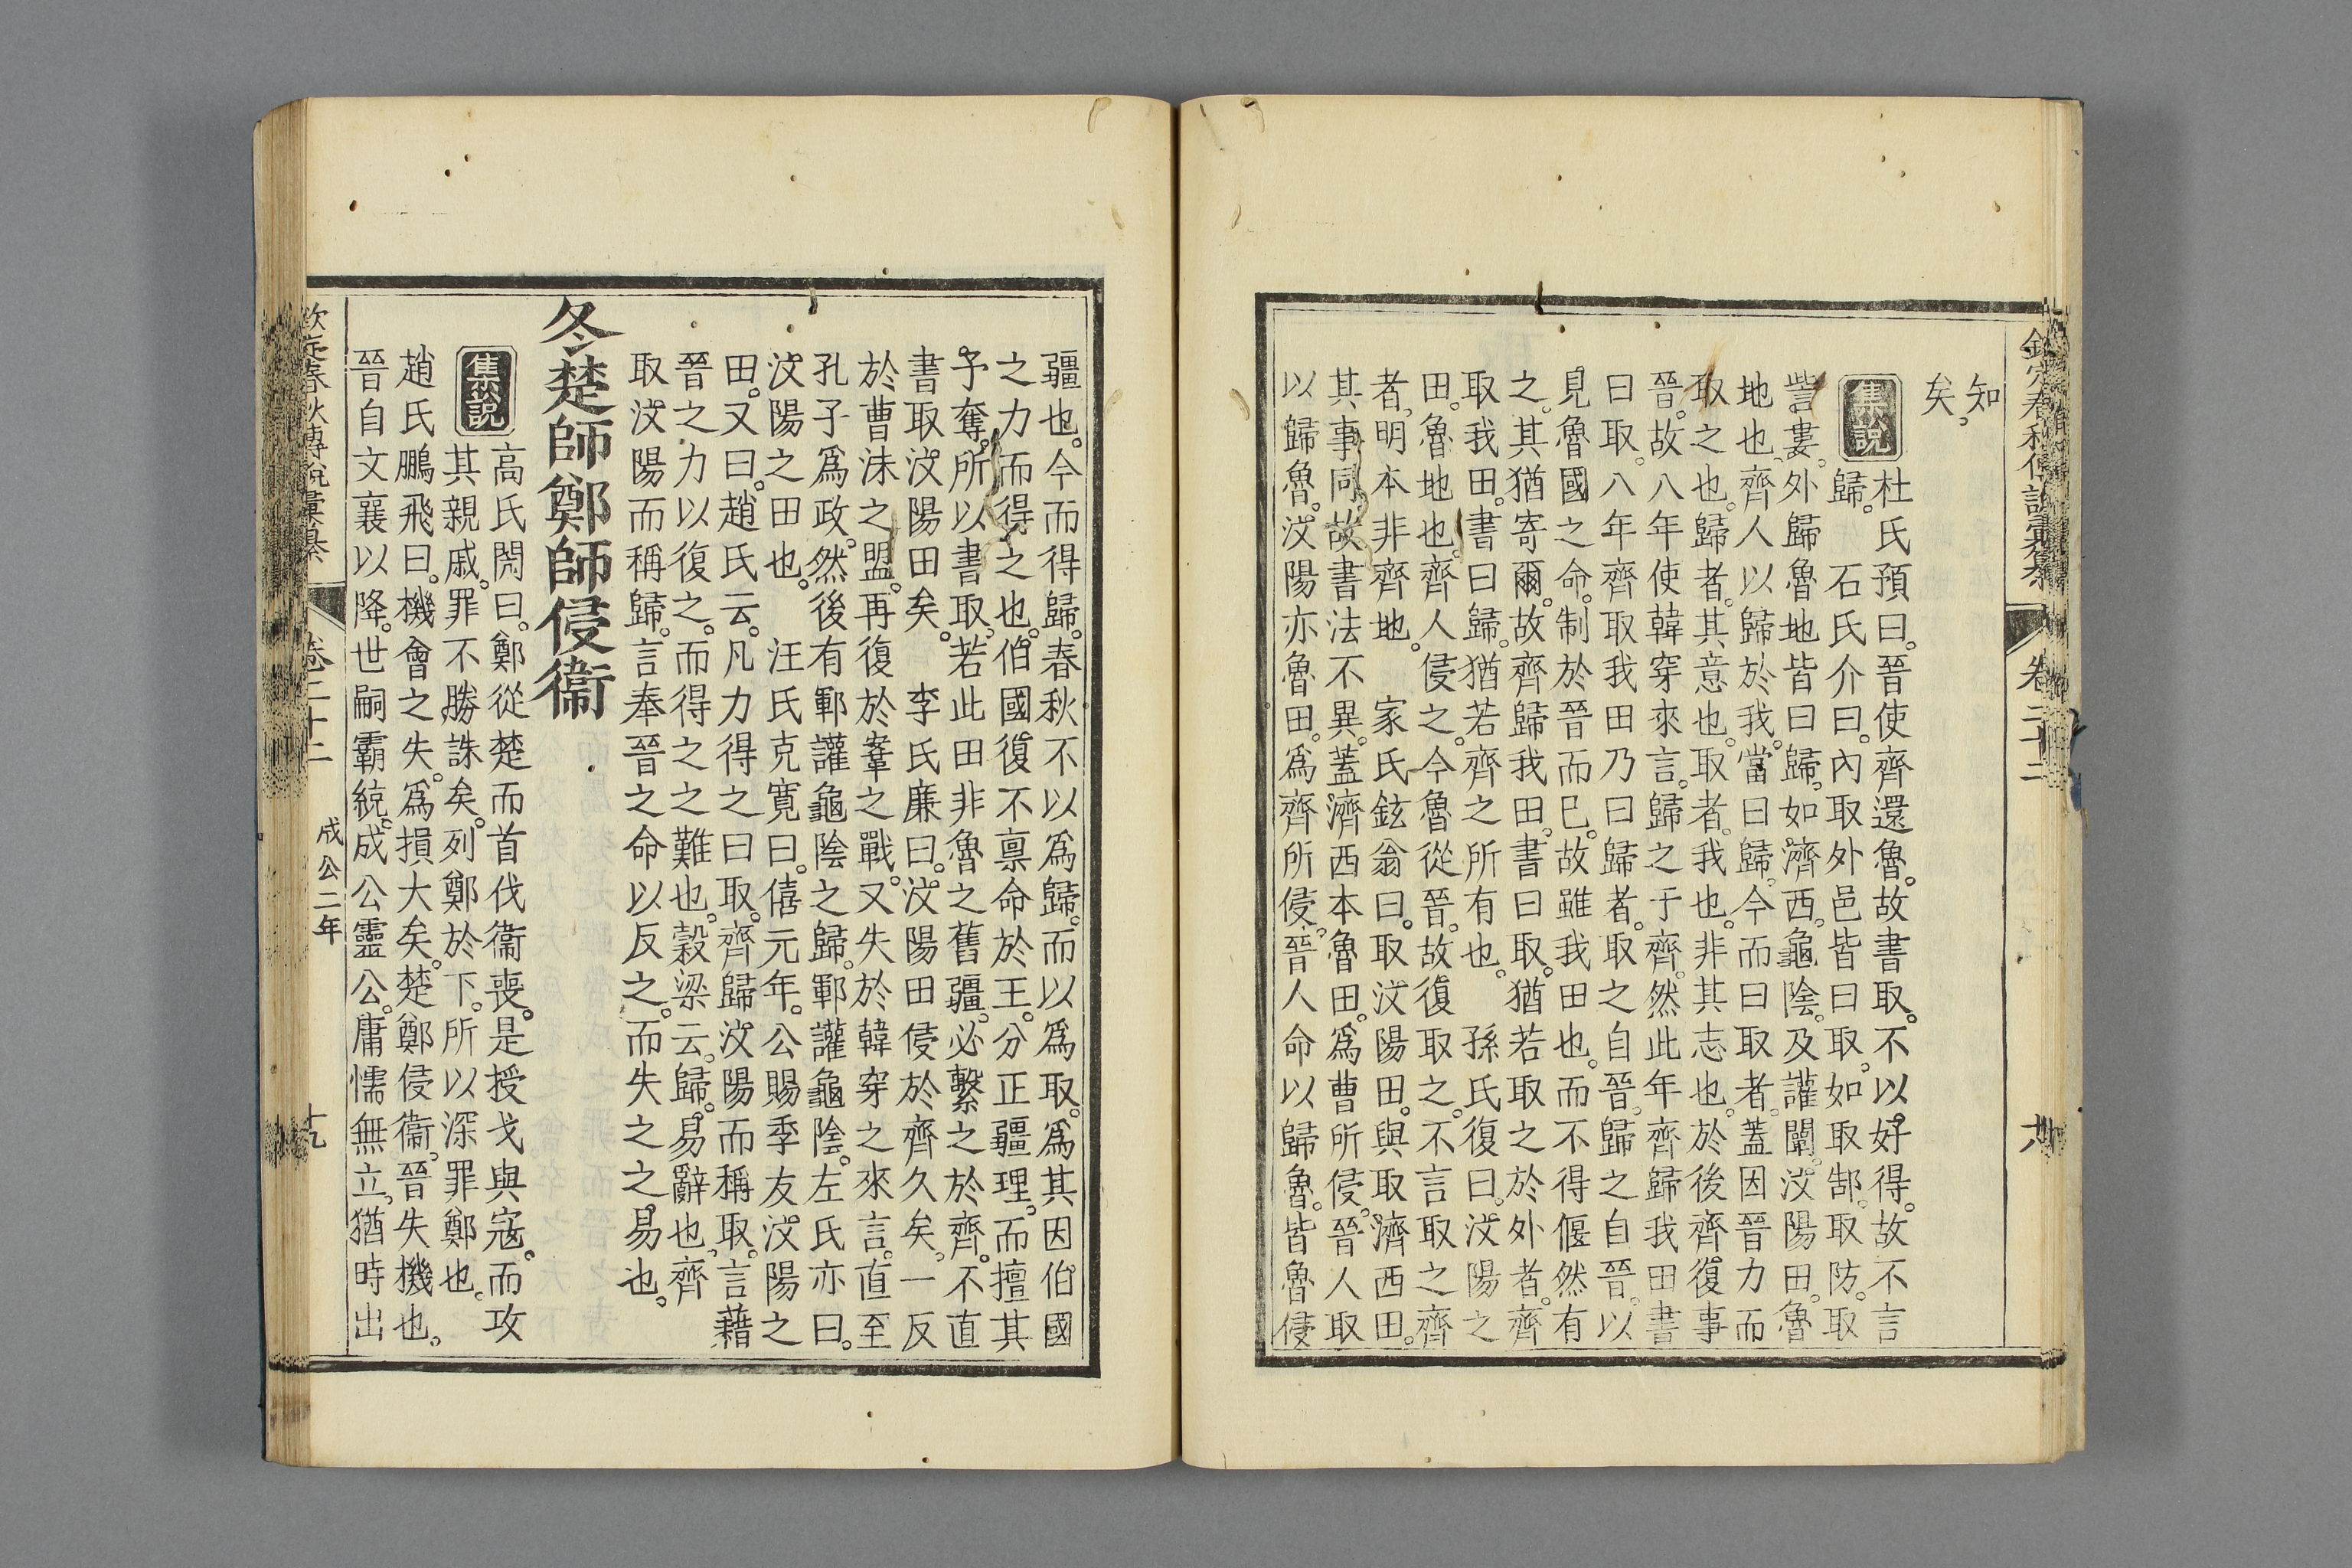 知
矣
集說
杜氏預曰晉使齊還魯故書取不以好得故不言
歸 石氏介曰內取外邑皆曰取如取郜取防取
訾婁外歸魯地皆曰歸如濟西龜陰及讙闡汶陽田魯
地也齊人以歸於我當曰歸今而曰取者蓋因晉力而
取之也歸者其意也取者我也非其志也於後齊復事
晉故八年使韓穿來言歸之于齊然此年齊歸我田書
曰取八年齊取我田乃曰歸者取之自晉歸之自晉以
見魯國之命制於晉而已故雖我田也而不得偃然有
之其猶寄爾故齊歸我田書曰取猶若取之於外者齊
取我田書曰歸猶若齊之所有也 孫氏復曰汶陽之
田魯地也齊人侵之今魯從晉故復取之不言取之齊
者明本非齊地 家氏鉉翁曰取汶陽田與取濟西田
其事同故書法不異蓋濟西本魯田爲曹所侵晉人取
以歸魯汶陽亦魯田爲齊所侵晉人命以歸魯皆魯侵
疆也今而得歸春秋不以爲歸而以爲取爲其因伯國
之力而得之也伯國復不禀命於王分正疆理而擅其
予奪所以書取若此田非魯之舊疆必繫之於齊不直
書取汶陽田矣 李氏廉曰汶陽田侵於齊久矣一反
於曹沬之盟再復於鞌之戰又失於韓穿之來言直至
孔子爲政然後有鄆讙龜陰之歸鄆讙龜陰左氏亦曰
汶陽之田也 汪氏克寬曰僖元年公賜季友汶陽之
田又曰趙氏云凡力得之曰取齊歸汶陽而稱取言藉
晉之力以復之而得之之難也穀梁云歸易辭也齊
取汶陽而稱歸言奉晉之命以反之而失之之易也
冬楚師鄭師侵衞
集說
高氏閌曰鄭從楚而首伐衞喪是授戈與寇而攻
其親戚罪不勝誅矣列鄭於下所以深罪鄭也
趙氏鵬飛曰機會之失爲損大矣楚鄭侵衞晉失機也
晉自文襄以降世嗣霸統成公靈公庸懦無立猶時出
欽定春秋傳說彙纂
卷二十二
成公二年
十九